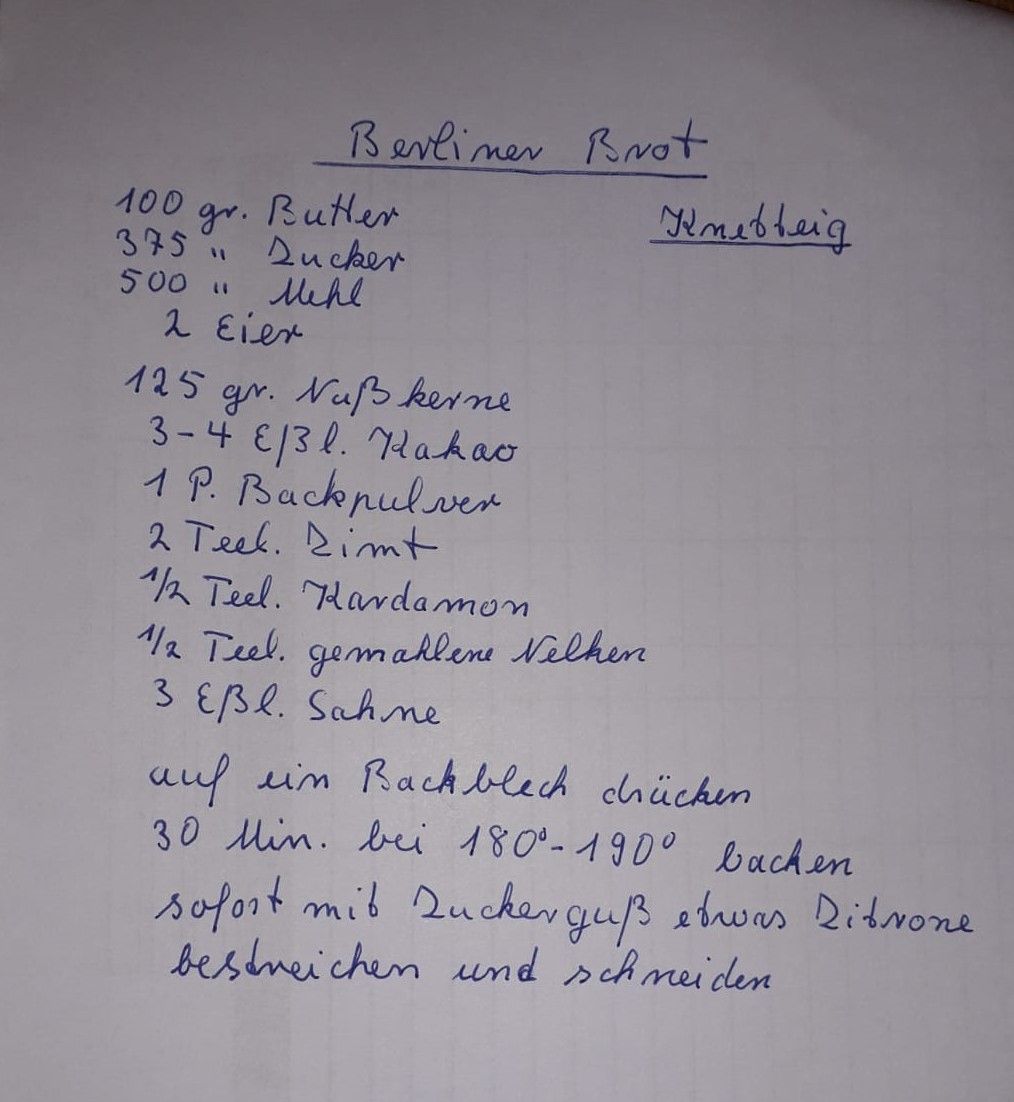 Berliner Brot
100 gr. Butter
Knetteig
375 " Zucker
500 " Mehl
2 Eier
125 gr. Nußkerne
3-4 Eßl. Kakao
1 P. Backpulver
2 Teel. Zimt
1/2 Teel. Kardamon
1/2 Teel. gemahlene Nelken
3 Eßl. Sahne
auf ein Backblech drücken
30 Min. bei 180°-190° backen
sofort mit Zuckerguß etwas Zitrone
bestreichen und schneiden